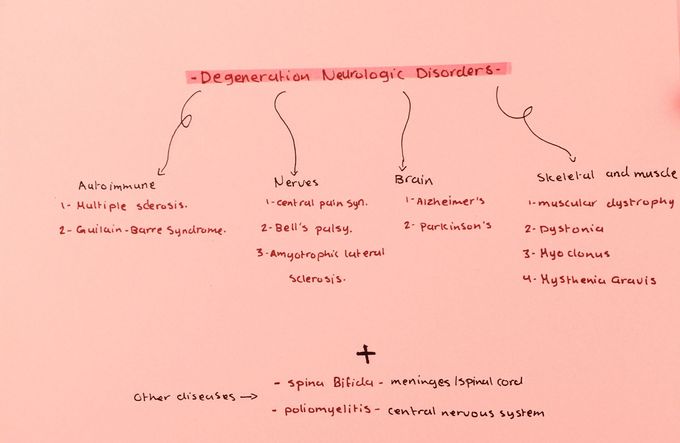 - Degeneration Neurologic Disorders -
Autoimmune
1- Multiple sclerosis.
2- Guilain-Barre Syndrome.
Nerves
1- central pain syn.
2- Bell's palsy.
3- Amyotrophic lateral
sclerosis.
Brain
1- Alzheimer's
2- parkinson's
Skeletal and muscle
1- muscular dystrophy
2- Dystonia
3- Myoclonus
4- Mysthenia Gravis
+
Other diseases →
- spina Bifida - meninges/spinal cord
- poliomyelitis - central nervous system